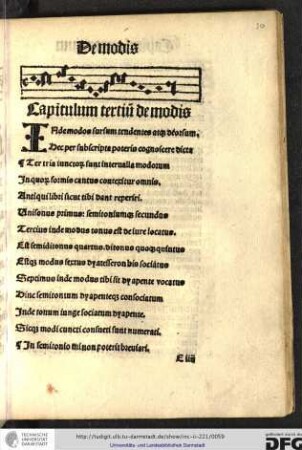 De modis
Capitulum tertiũ de modis
Inde modos sursum tendentes atqꝫ deorsum,
Hec per subscripta poteris cognoscere dicta
¶ Ter tria iunctorꝝ sunt interualla modorum
In quorꝝ formis cantus contexitur omnis.
Antiqui libri sicut tibi dant reperiri.
Unisonus primus: semitoniumqꝫ secundus
Tercius inde modus tonus est de iure locatus.
Est semiditonus quartus. ditonus quoqꝫ quintus
Estqꝫ modus sextus dyatesseron bis sociatus
Septimus inde modus tibi sit dyapente vocatus
Hinc semitonium dyapenteqꝫ consociatum
Inde tonum iunge sociatum dyapente.
Sicqꝫ modi cuncti consueti sunt numerati.
¶ In semitonio mi non poteris breuiari.
E iiii
TECHNISCHE
UNIVERSITÄT
DARMSTADT
http://tudigit.ulb.tu-darmstadt.de/show/inc-ii-221/0059
Universitäts- und Landesbibliothek Darmstadt
DFG